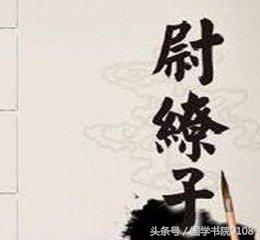 尉繚子
头条号/国学书院0108